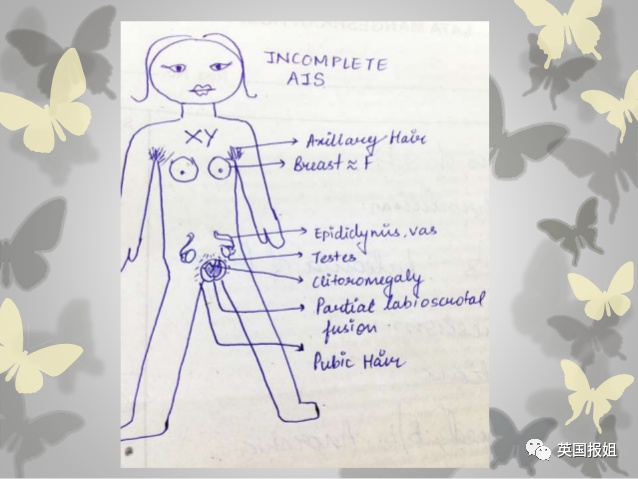 INCOMPLETE
AIS
XY
Axillary Hair
Breast ≈ F
Epididymis, vas
Testes
Clitoromegaly
Partial labioscrotal
fusion
Pubic Hair
英国报姐